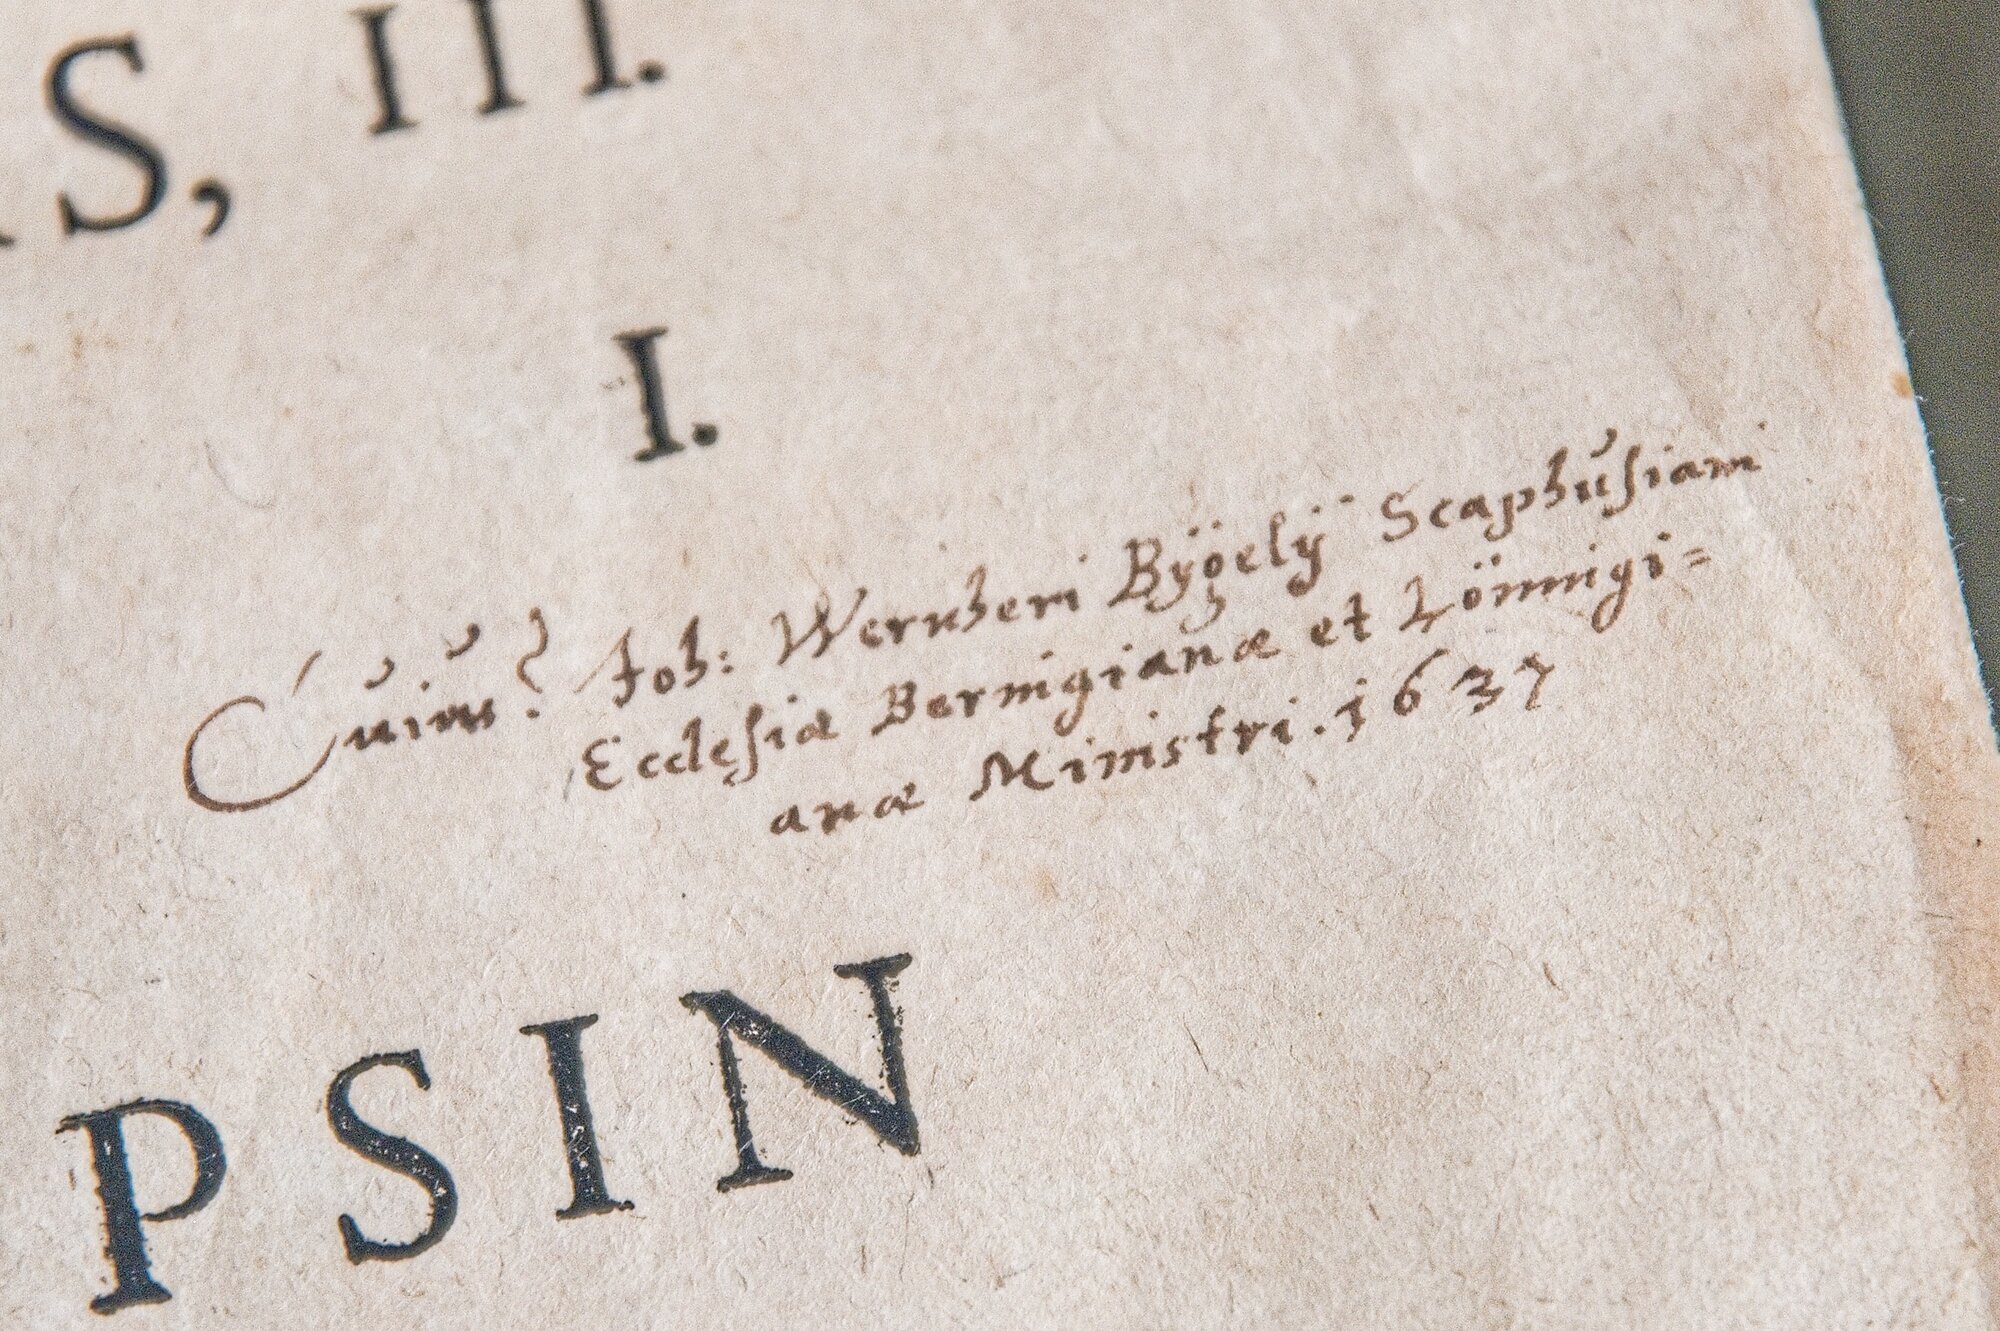 S, III.
I.
Cuius? Joh: Wernheri Bÿgelÿ Scaphusiani
Ecclesiæ Beringianæ et Löningi=
anæ Ministri. 1637
PSIN